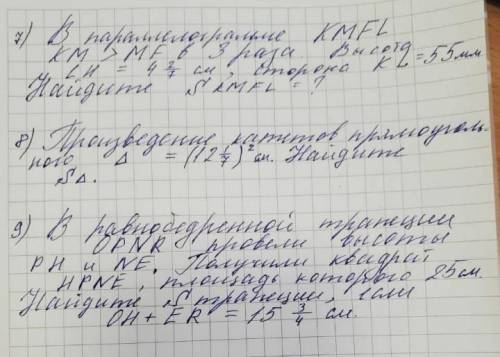 7) В параллелограмме KMFL
KM > MF в 3 раза Высота
LH = 4 2/7 см, сторона KL = 55 мм.
Найдите S KMFL = ?
8) Произведение катетов прямоуголь-
ного Δ = (12 1/7)² см. Найдите
SΔ.
9) В равнобедренной трапеции
OPNR провели высоты
PH и NE. Получили квадрат
HPNE, площадь которого 25 см.
Найдите S трапеции, если
OH + ER = 15 3/4 см.